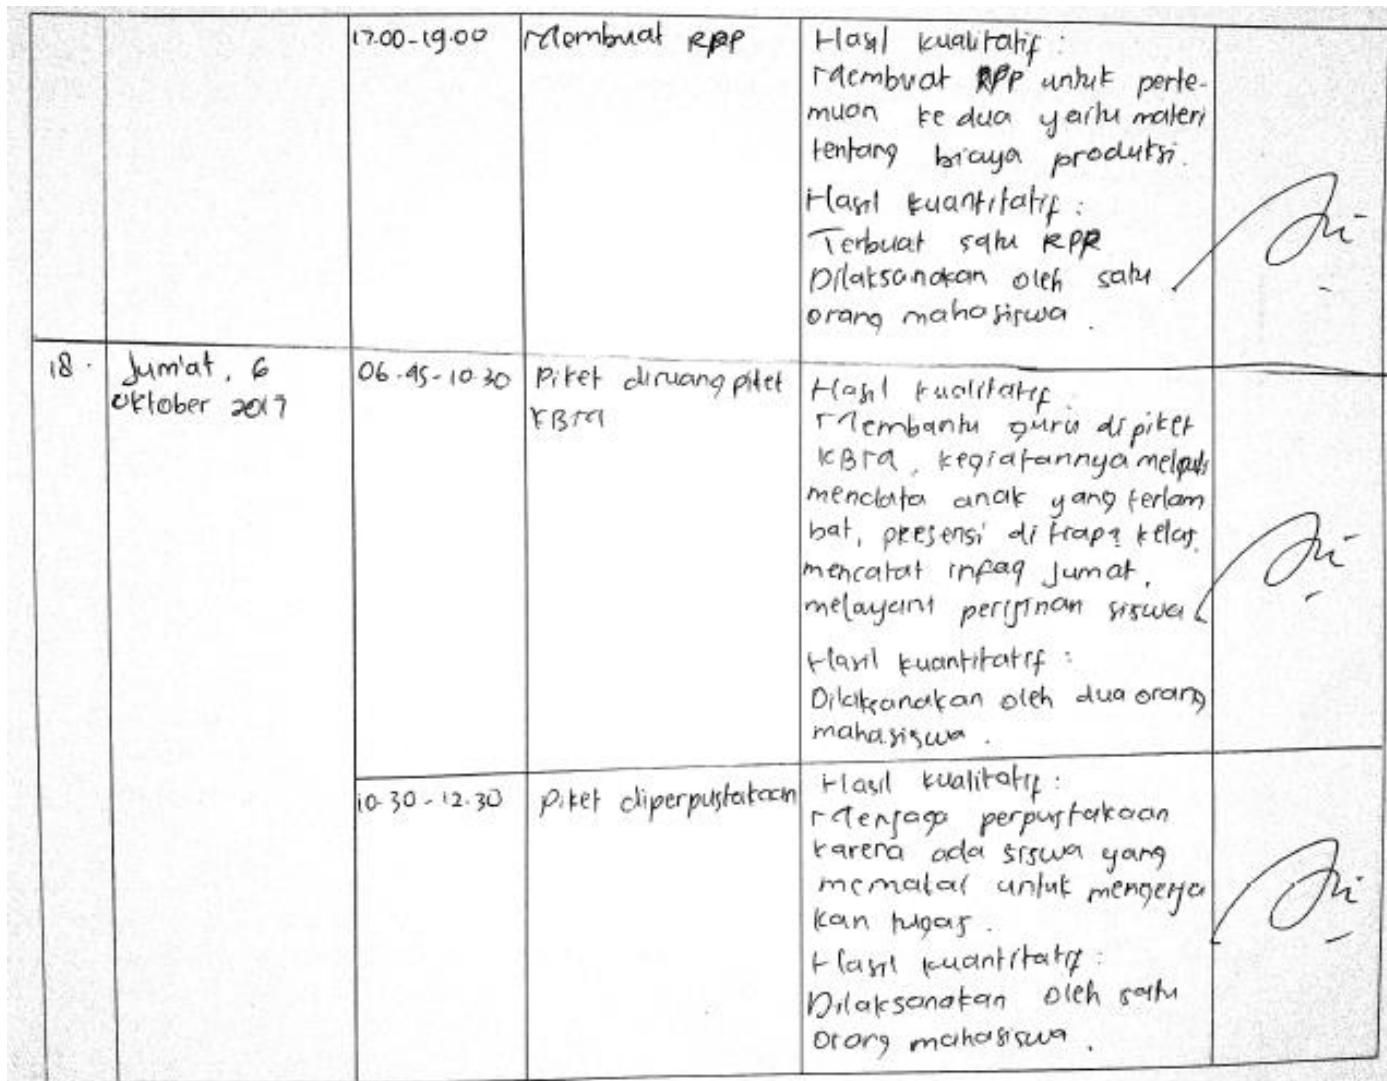 17.00-19.00
Membuat RPP
Hasil kualitatif :
Membuat RPP untuk perte-
muan ke dua yaitu materi
tentang biaya produksi.
Hasil kuantitatif :
Terbuat satu RPP
Dilaksanakan oleh satu
orang mahasiswa.
18.
Jum'at, 6
Oktober 2017
06.45-10.30
Piket diruang piket
KBM
Hasil kualitatif
Membantu guru di piket
KBM, kegiatannya meliputi
mendata anak yang terlam
bat, presensi di tiap2 kelas,
mencatat infaq jumat,
melayani perijinan siswa
Hasil kuantitatif :
Dilaksanakan oleh dua orang
mahasiswa.
10.30-12.30
Piket diperpustakaan
Hasil kualitatif :
Menjaga perpustakaan
karena ada siswa yang
memakai untuk mengerja
kan tugas.
Hasil kuantitatif :
Dilaksanakan oleh satu
orang mahasiswa.